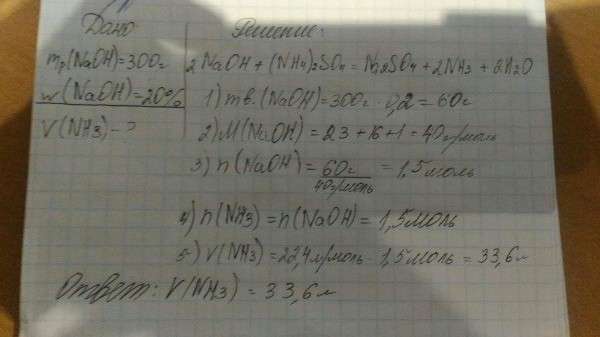 Дано
Решение:
mр(NaOH)=300г
w(NaOH)=20%
V(NH3)-?
2NaOH+(NH4)2SO4=Na2SO4+2NH3+2H2O
1) mв.(NaOH)=300г·0,2=60г
2) M(NaOH)=23+16+1=40г/моль
3) n(NaOH)=60г/40г/моль=1,5моль
4) n(NH3)=n(NaOH)=1,5моль
5) V(NH3)=22,4л/моль·1,5моль=33,6л
Ответ: V(NH3)=33,6л